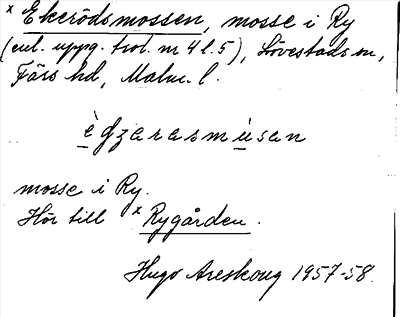 x Ekerödsmossen, mosse i Ry
(enl. uppg. trol. nr 4 l. 5), Lövestads sn,
Färs hd, Malm. l.
mosse i Ry.
Hör till x Rygården.
Hugo Areskoug 1957-58.